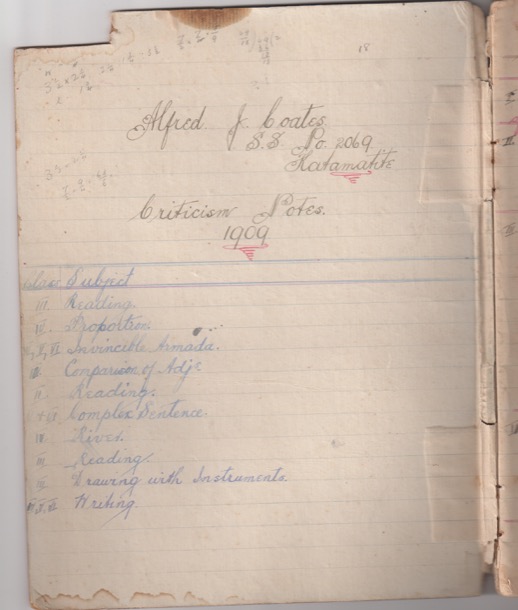 18
Alfred J. Coates.
S.S. No. 2069.
Katamatite
Criticism Notes.
1909
Class Subject
III. Reading.
Proportion.
Invincible Armada.
Comparison of Adjs
II. Reading.
Complex Sentence.
River.
III Reading.
Drawing with Instruments.
Writing.